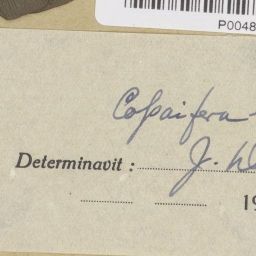 P0048
Copaifera
Determinavit : J.
19